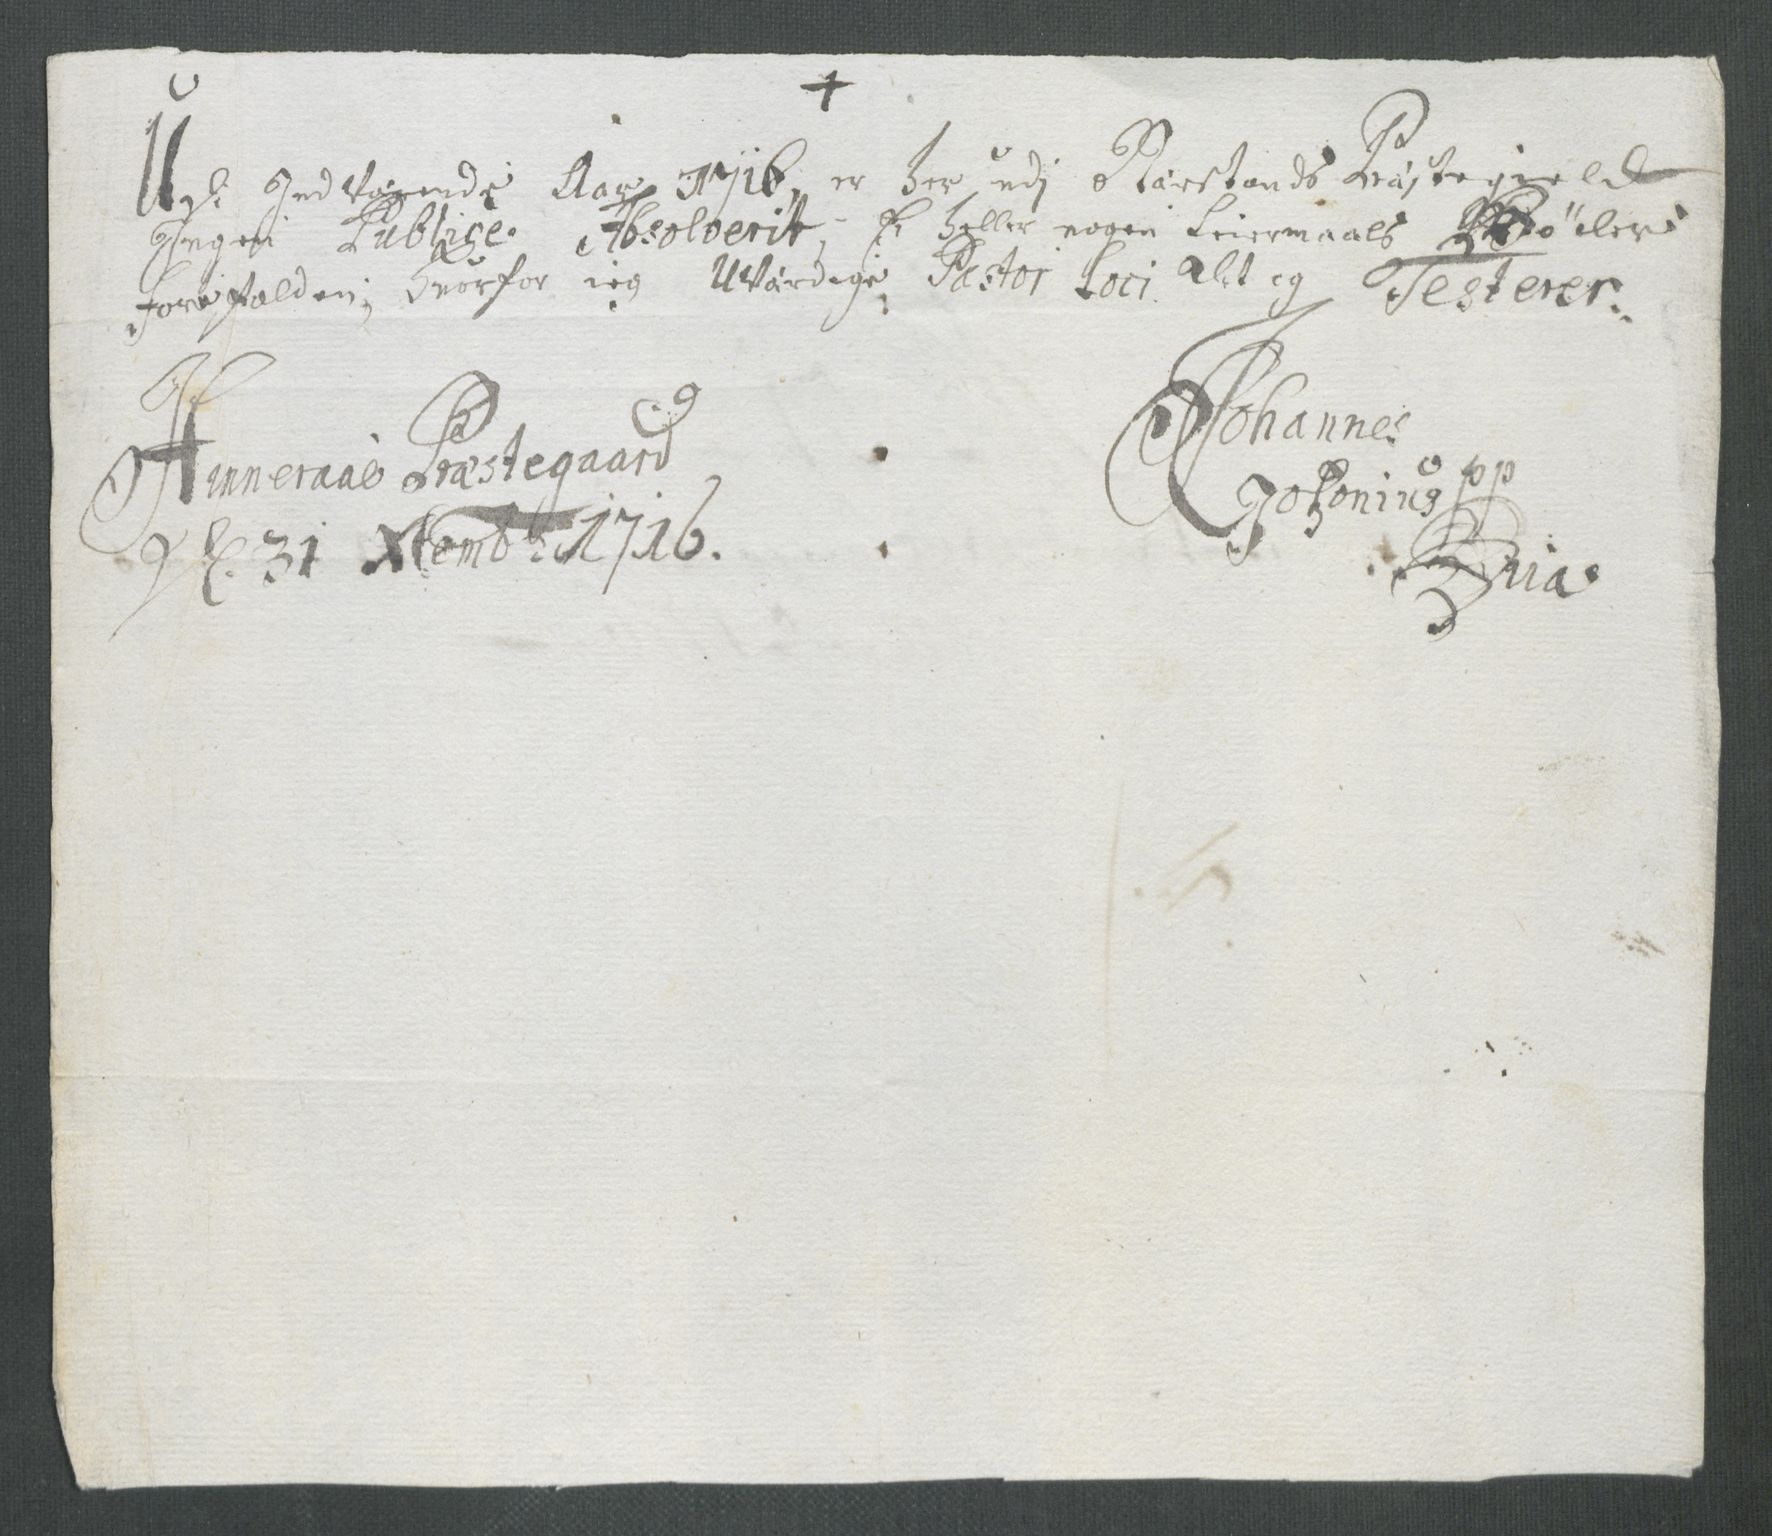 +
Udi Indværende Aar 1716, er her udj Nærstrands Præstegield
Ingen Publice Absolverit, Ej heller nogen Leiermaals Bøder
forefalden; Hvorfor ieg Uværdige Pastor Loci Alt Testerer.
Hinneraae Præstegaard
31 Xtembr: 1716.
Johannes
Johonius pp